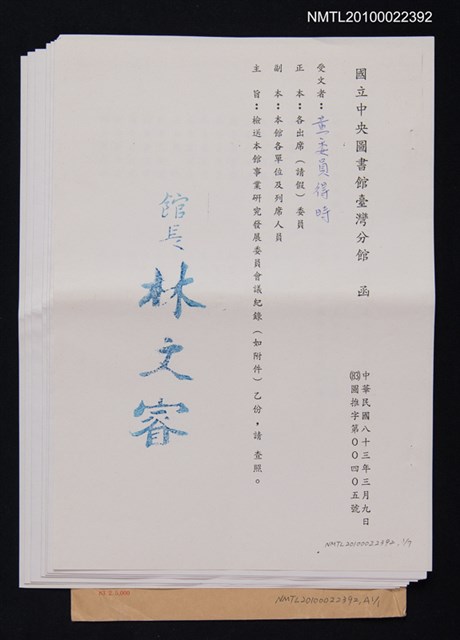 NMTL20100022392
國立中央圖書館臺灣分館　函
中華民國八十三年三月九日
(83)圖推字第００４０５號
受文者：黃委員得時
正　本：各出席（請假）委員
副　本：本館各單位及列席人員
主　旨：檢送本館事業研究發展委員會議紀錄（如附件）乙份，請 查照。
館長 林文睿
NMTL20100022392, 1/7
NMTL20100022392, A1/1